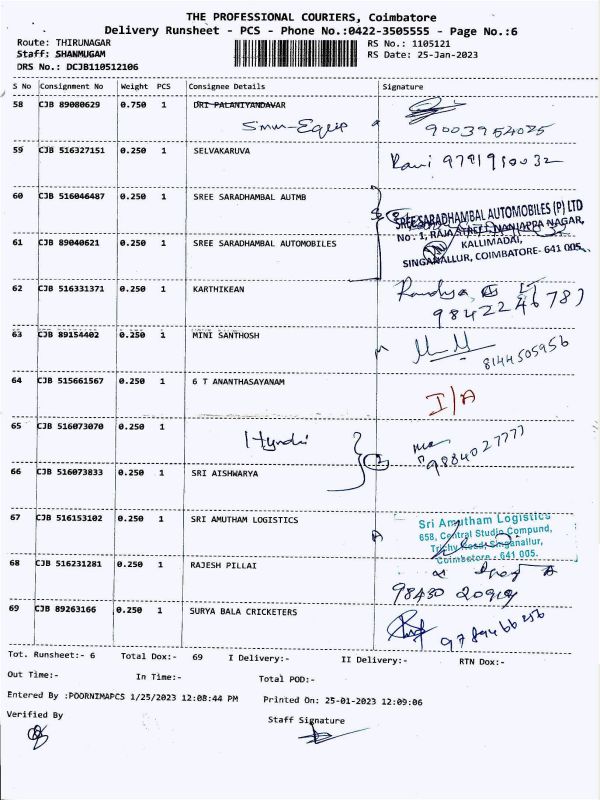 THE PROFESSIONAL COURIERS, Coimbatore
Delivery Runsheet - PCS - Phone No.:0422-3505555 - Page No.:6
Route: THIRUNAGAR RS No.: 1105121
Staff: SHANMUGAM RS Date: 25-Jan-2023
DRS No.: DCJB110512106
S No Consignment No Weight PCS Consignee Details Signature
58 CJB 89080629 0.750 1 DRI PALANIYANDAVAR
9003954025
59 CJB 516327151 0.250 1 SELVAKARUVA
Ravi
60 CJB 516046487 0.250 1 SREE SARADHAMBAL AUTMB
SREE SARADHAMBAL AUTOMOBILES (P) LTD
No. 1, RAJA STREET, NANJAPPA NAGAR,
KALLIMADAI,
SINGANALLUR, COIMBATORE- 641 005.
61 CJB 89040621 0.250 1 SREE SARADHAMBAL AUTOMOBILES
62 CJB 516331371 0.250 1 KARTHIKEAN
63 CJB 89154402 0.250 1 MINI SANTHOSH
8144505956
64 CJB 515661567 0.250 1 6 T ANANTHASAYANAM
I/A
65 CJB 516073070 0.250 1
9884027777
66 CJB 516073833 0.250 1 SRI AISHWARYA
67 CJB 516153102 0.250 1 SRI AMUTHAM LOGISTICS
Sri Amutham Logistics
658, Central Studio Compund,
Trichy Road, Singanallur,
Coimbatore - 641 005.
68 CJB 516231281 0.250 1 RAJESH PILLAI
69 CJB 89263166 0.250 1 SURYA BALA CRICKETERS
Tot. Runsheet:- 6 Total Dox:- 69 I Delivery:- II Delivery:- RTN Dox:-
Out Time:- In Time:- Total POD:-
Entered By :POORNIMAPCS 1/25/2023 12:08:44 PM Printed On: 25-01-2023 12:09:06
Verified By Staff Signature